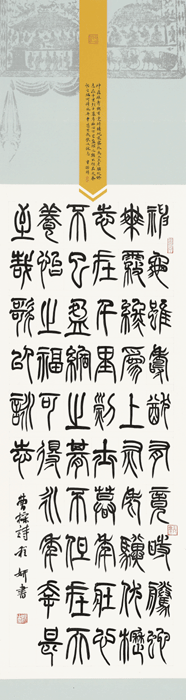 神龜雖壽猶有竟時騰蛇
乘霧終為土灰老驥伏櫪
志在千里烈士暮年壯心
不已盈縮之期不但在天
養怡之福可得永年幸甚
至哉歌以詠志
曹操詩 妍書